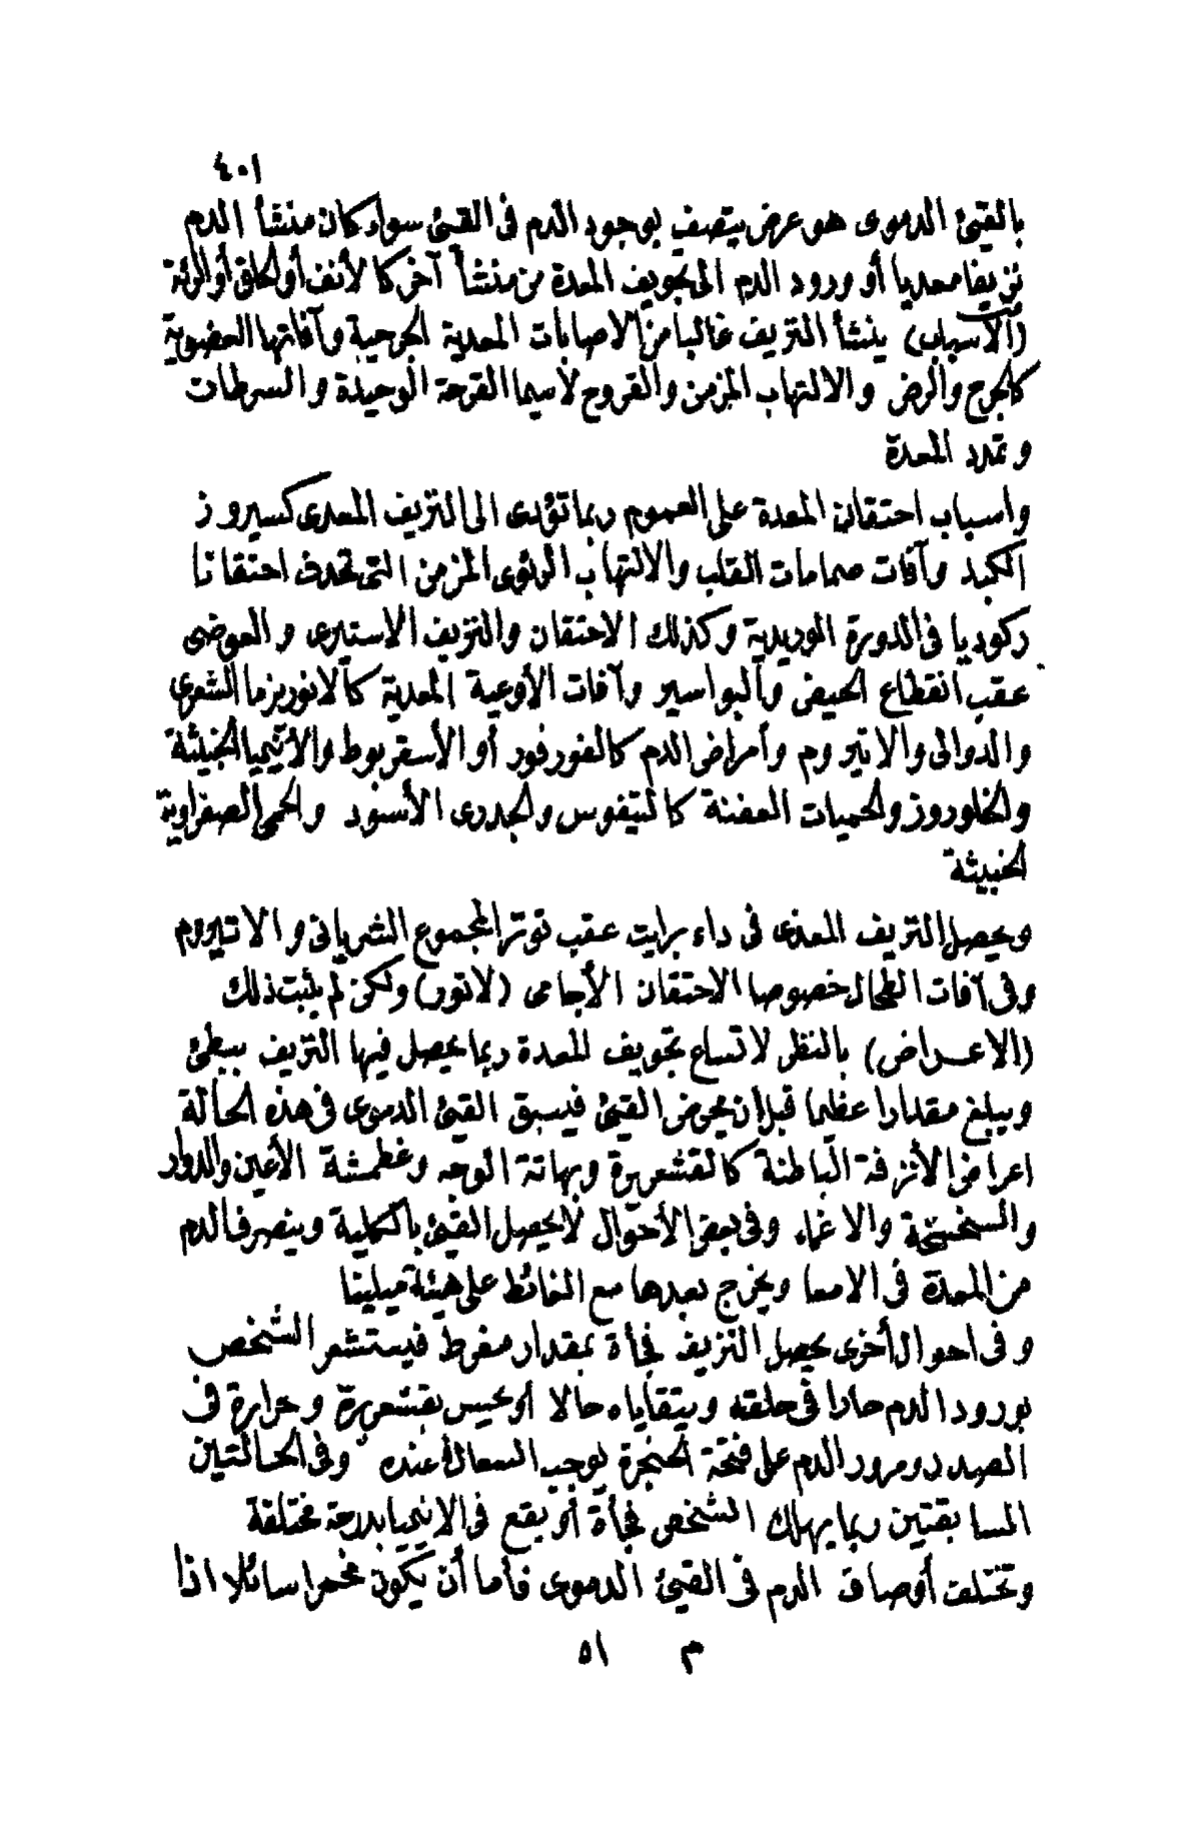 ٤٠١
بالقيئ الدموى هو عرض يتصف بوجود الدم فى القيئ سواء كان منشأ الدم
نزيفا معديا أو ورود الدم الى تجويف المعدة من منشأ آخر كالأنف أو الحلق أو الرئة
(الأسباب) ينشأ النزيف غالبا من الاصابات المعدية الجرحية وآفاتها العضوية
كالجرح والرض والالتهاب المزمن والقروح لاسيما القرحة الوحيدة والسرطات
وتمدد المعدة
واسباب احتقان المعدة على العموم ربما تؤدى الى النزيف المعدى كسيروز
الكبد وآفات صمامات القلب والالتهاب الرئوى المزمن التى تحدث احتقانا
ركوديا فى الدورة الوريدية وكذلك الاحتقان والنزيف الاستيرى والعوضى
عقب انقطاع الحيض والبواسير وآفات الأوعية المعدية كالانوريزما الشعرى
والدوالى والاتيروم وأمراض الدم كالفورفور أو الأسقربوط والأنيميا الخبيثة
والخلوروز والحميات العفنة كالتيفوس والجدرى الأسود والحمى الصفراوية
الخبيثة
ويحصل النزيف المعدى فى داء برايت عقب توتر المجموع الشريانى والاتيروم
وفى آفات الطحال خصوصا الاحتقان الأجامى (لانور) ولكن لم يثبت ذلك
(الاعراض) بالنظر لاتساع تجويف المعدة ربما يحصل فيها النزيف ببطئ
ويبلغ مقدارا عظيما قبل ان يحرض القيئ فيسبق القيئ الدموى فى هذه الحالة
اعراض الأنزفة الباطنة كالقشعريرة وبهاتة الوجه وغطمشة الأعين والدوار
والسخسخة والاغماء وفى بعض الأحوال لا يحصل القيئ بالكلية وينصرف الدم
من المعدة فى الامعا ويخرج بعدها مع الغائط على هيئة ميلينا
وفى احوال أخرى يحصل النزيف فجأة بمقدار مفرط فيستشعر الشخص
بورود الدم حارا فى حلقه ويتقاياه حالا أو يحس بقشعريرة وحرارة فى
الصدر ومرور الدم على فتحة الحنجرة يوجب السعال عنده وفى الحالتين
السابقتين ربما يهلك الشخص فجأة أو يقع فى الانيميا بدرجة مختلفة
وتختلف أوصاف الدم فى القيئ الدموى فأما أن يكون محمرا سائلا اذا
م ٥١